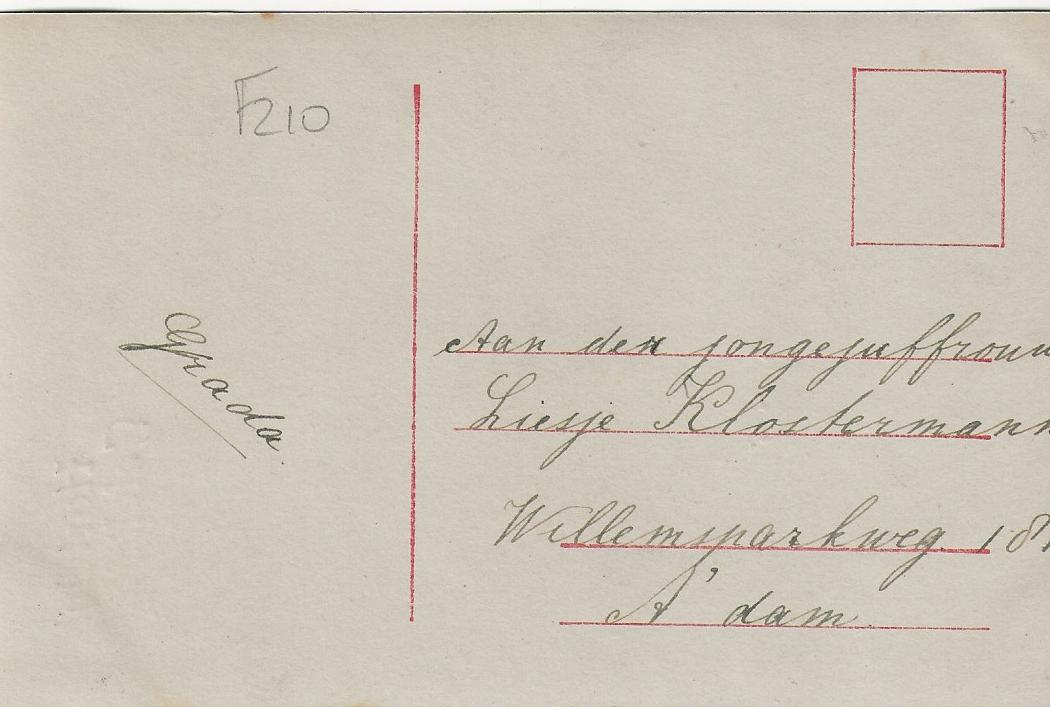 F210
Grada.
Aan den jongejuffrouw
Liesje Klostermann
Willemsparkweg 18
A'dam.